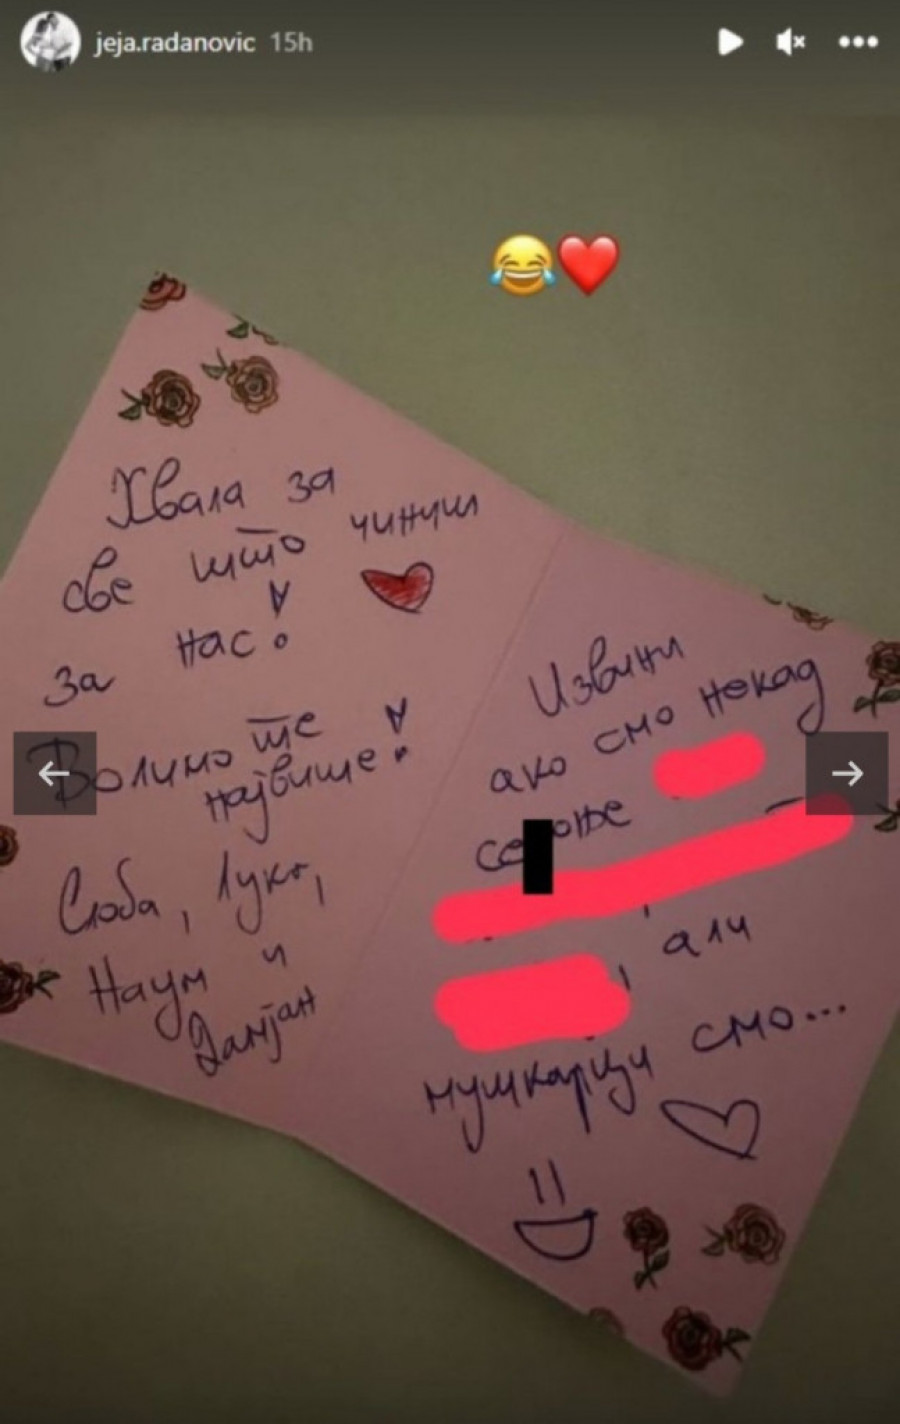 jeja.radanovic 15h
😂❤️
Хвала за
све што чиниш
за нас!
Волимо те
највише!
Слоба, Лука,
Наум и
Дамјан
Извини
ако смо некад
али
мушкарци смо...